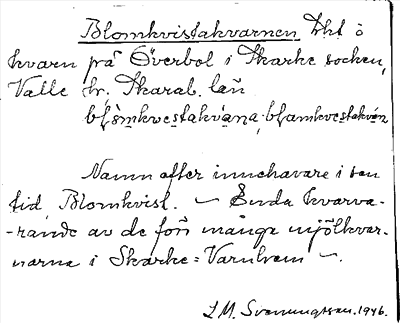 Blomkvistakvarnen
kvarn på Överbol i Skarke socken,
Valle hr, Skarab. län
Namn efter innehavare i sen
tid Blomkvist. – Enda kvarva-
-rande av de förr många mjölkvar-
narna i Skarke = Varnhem –.
L.M. Svenungsson. 1946.